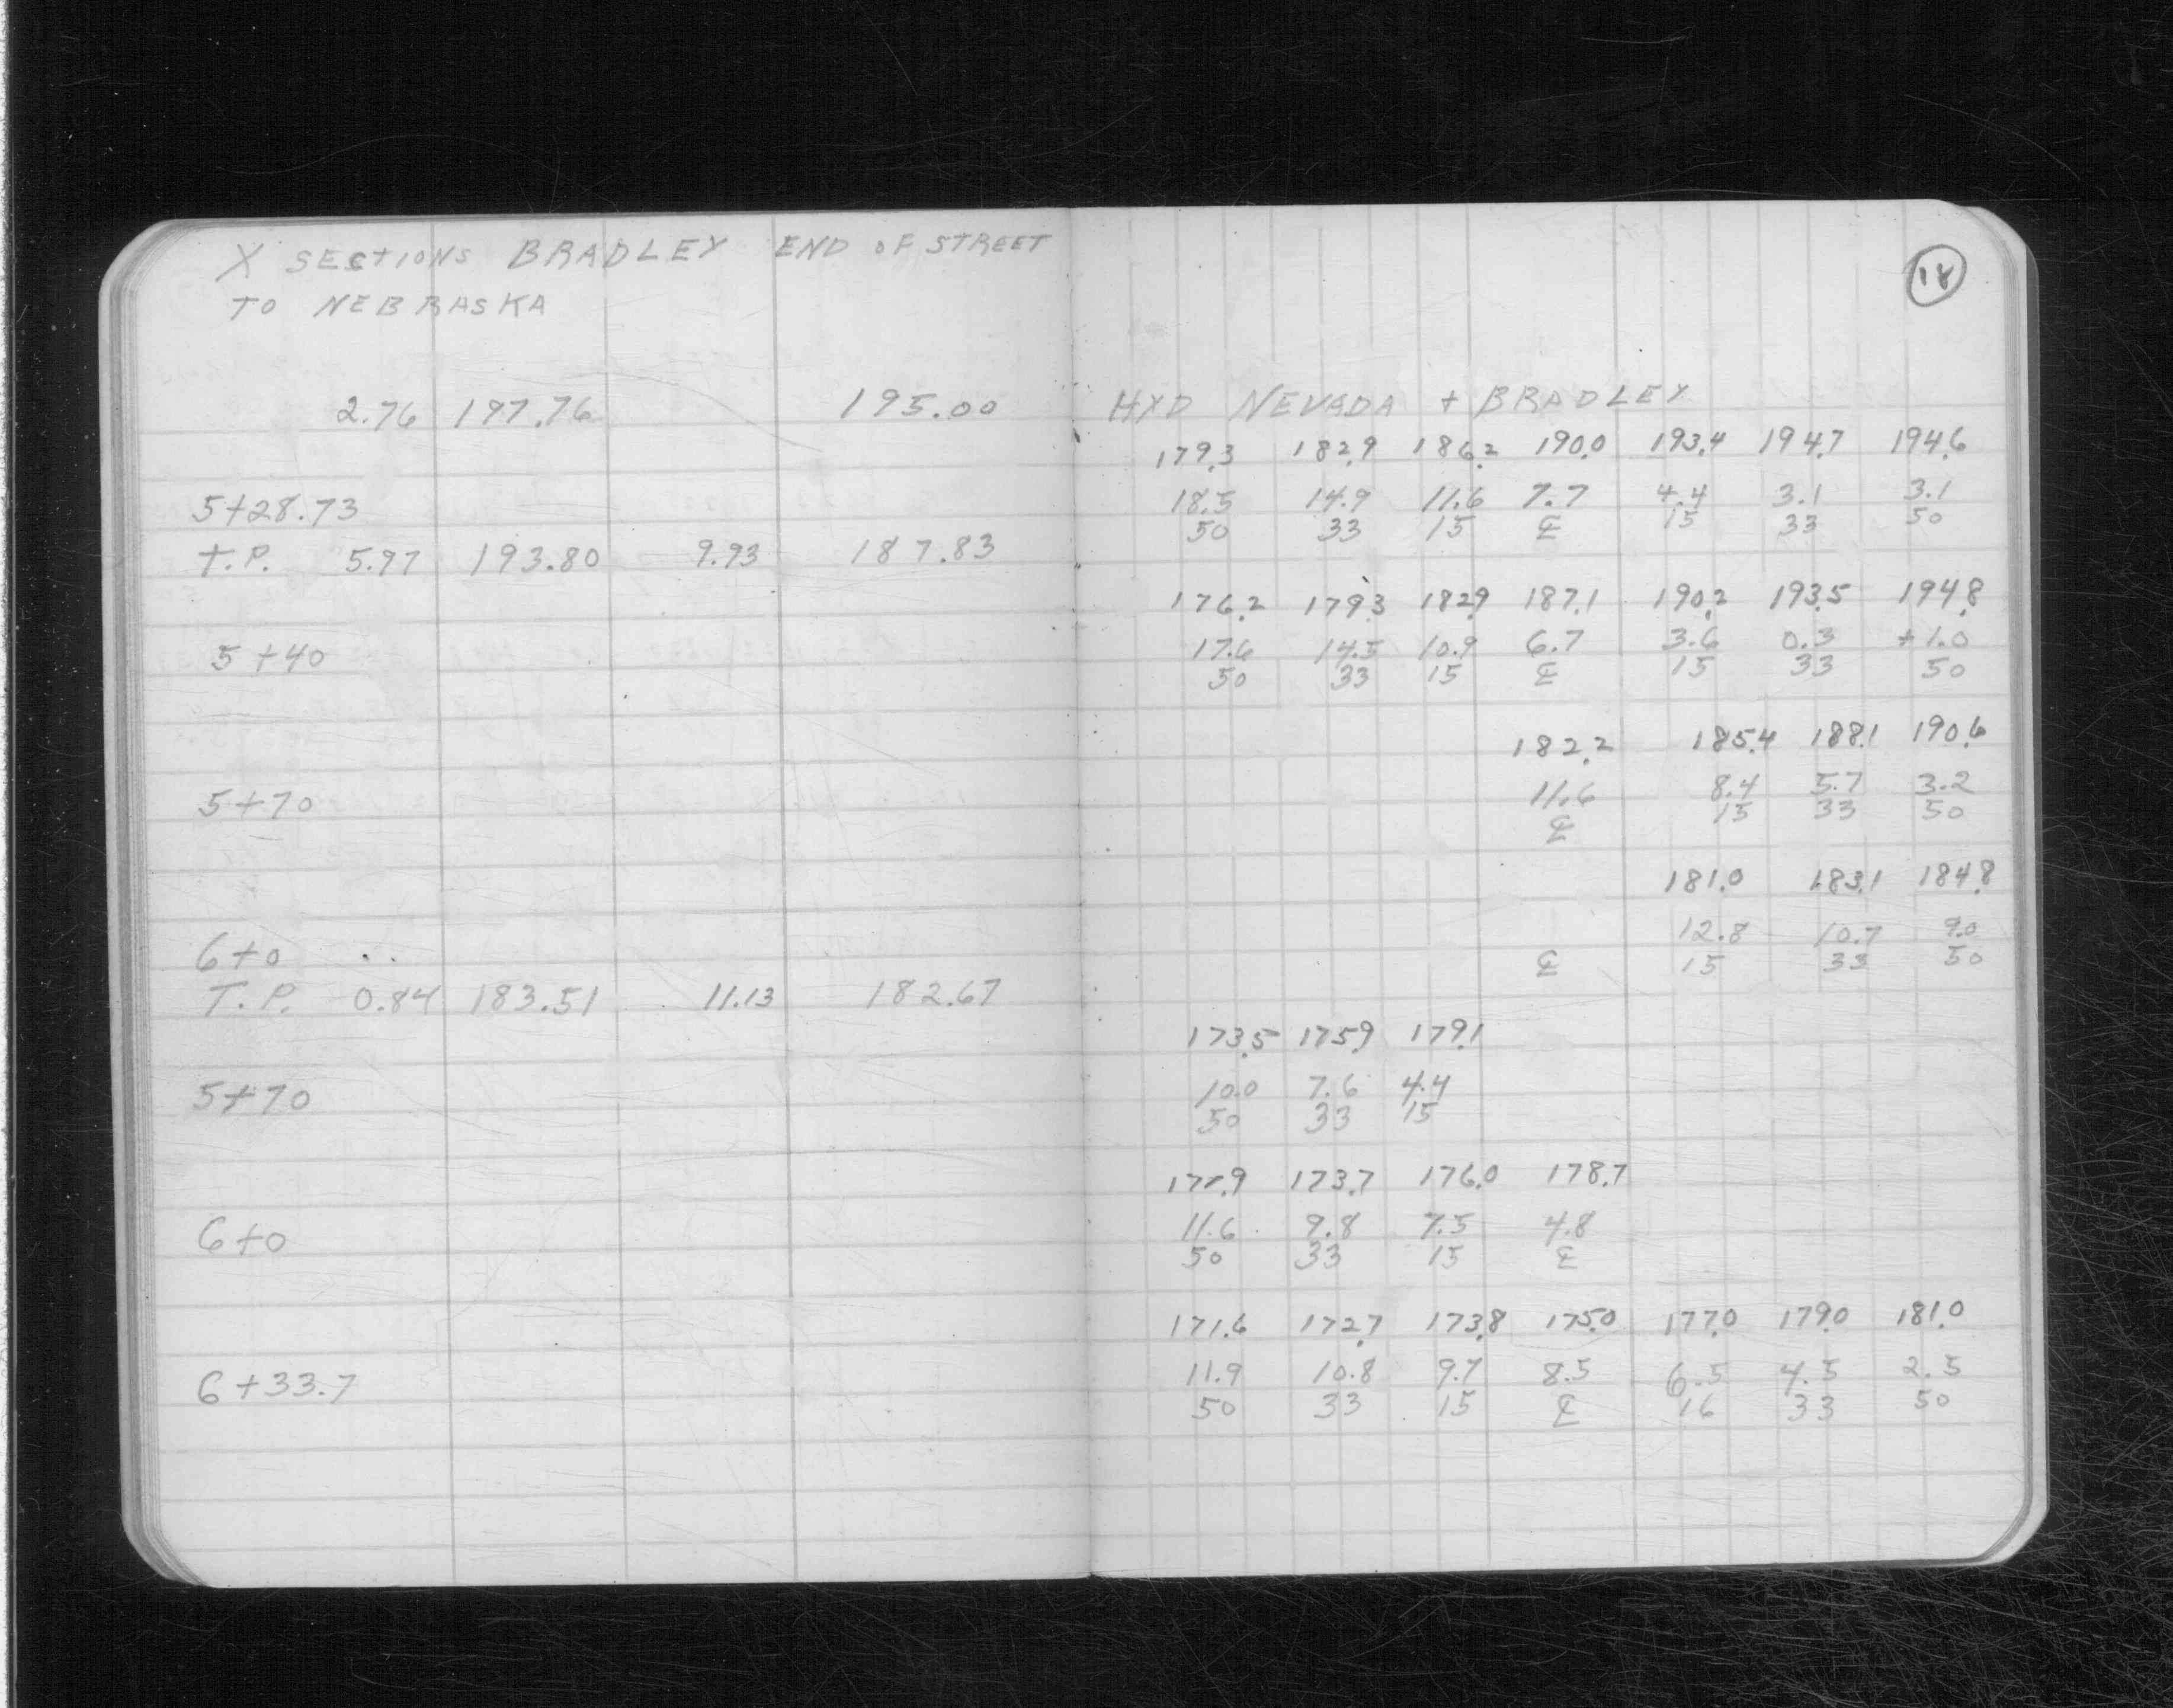 X SECTIONS BRADLEY END OF STREET
TO NEBRASKA
2.76 197.76 195.00
5+28.73
T.P. 5.97 193.80 9.93 187.83
5+40
5+70
6+0
T.P. 0.84 183.51 11.13 182.67
5+70
6+0
6+33.7
18
HYD NEVADA + BRADLEY
179.3 182.9 186.2 190.0 193.4 194.7 194.6
18.5 14.9 11.6 7.7 4.4 3.1 3.1
50 33 15 ℄ 15 33 50
176.2 179.3 182.9 187.1 190.2 193.5 194.8
17.6 14.5 10.9 6.7 3.6 0.3 +1.0
50 33 15 ℄ 15 33 50
182.2 185.4 188.1 190.6
11.6 8.4 5.7 3.2
℄ 15 33 50
181.0 183.1 184.8
12.8 10.7 9.0
℄ 15 33 50
173.5 175.9 179.1
10.0 7.6 4.4
50 33 15
173.7 176.0 178.7
11.6 9.8 7.5 4.8
50 33 15 ℄
171.6 172.7 173.8 175.0 177.0 179.0 181.0
11.9 10.8 9.7 8.5 6.5 4.5 2.5
50 33 15 ℄ 16 33 50